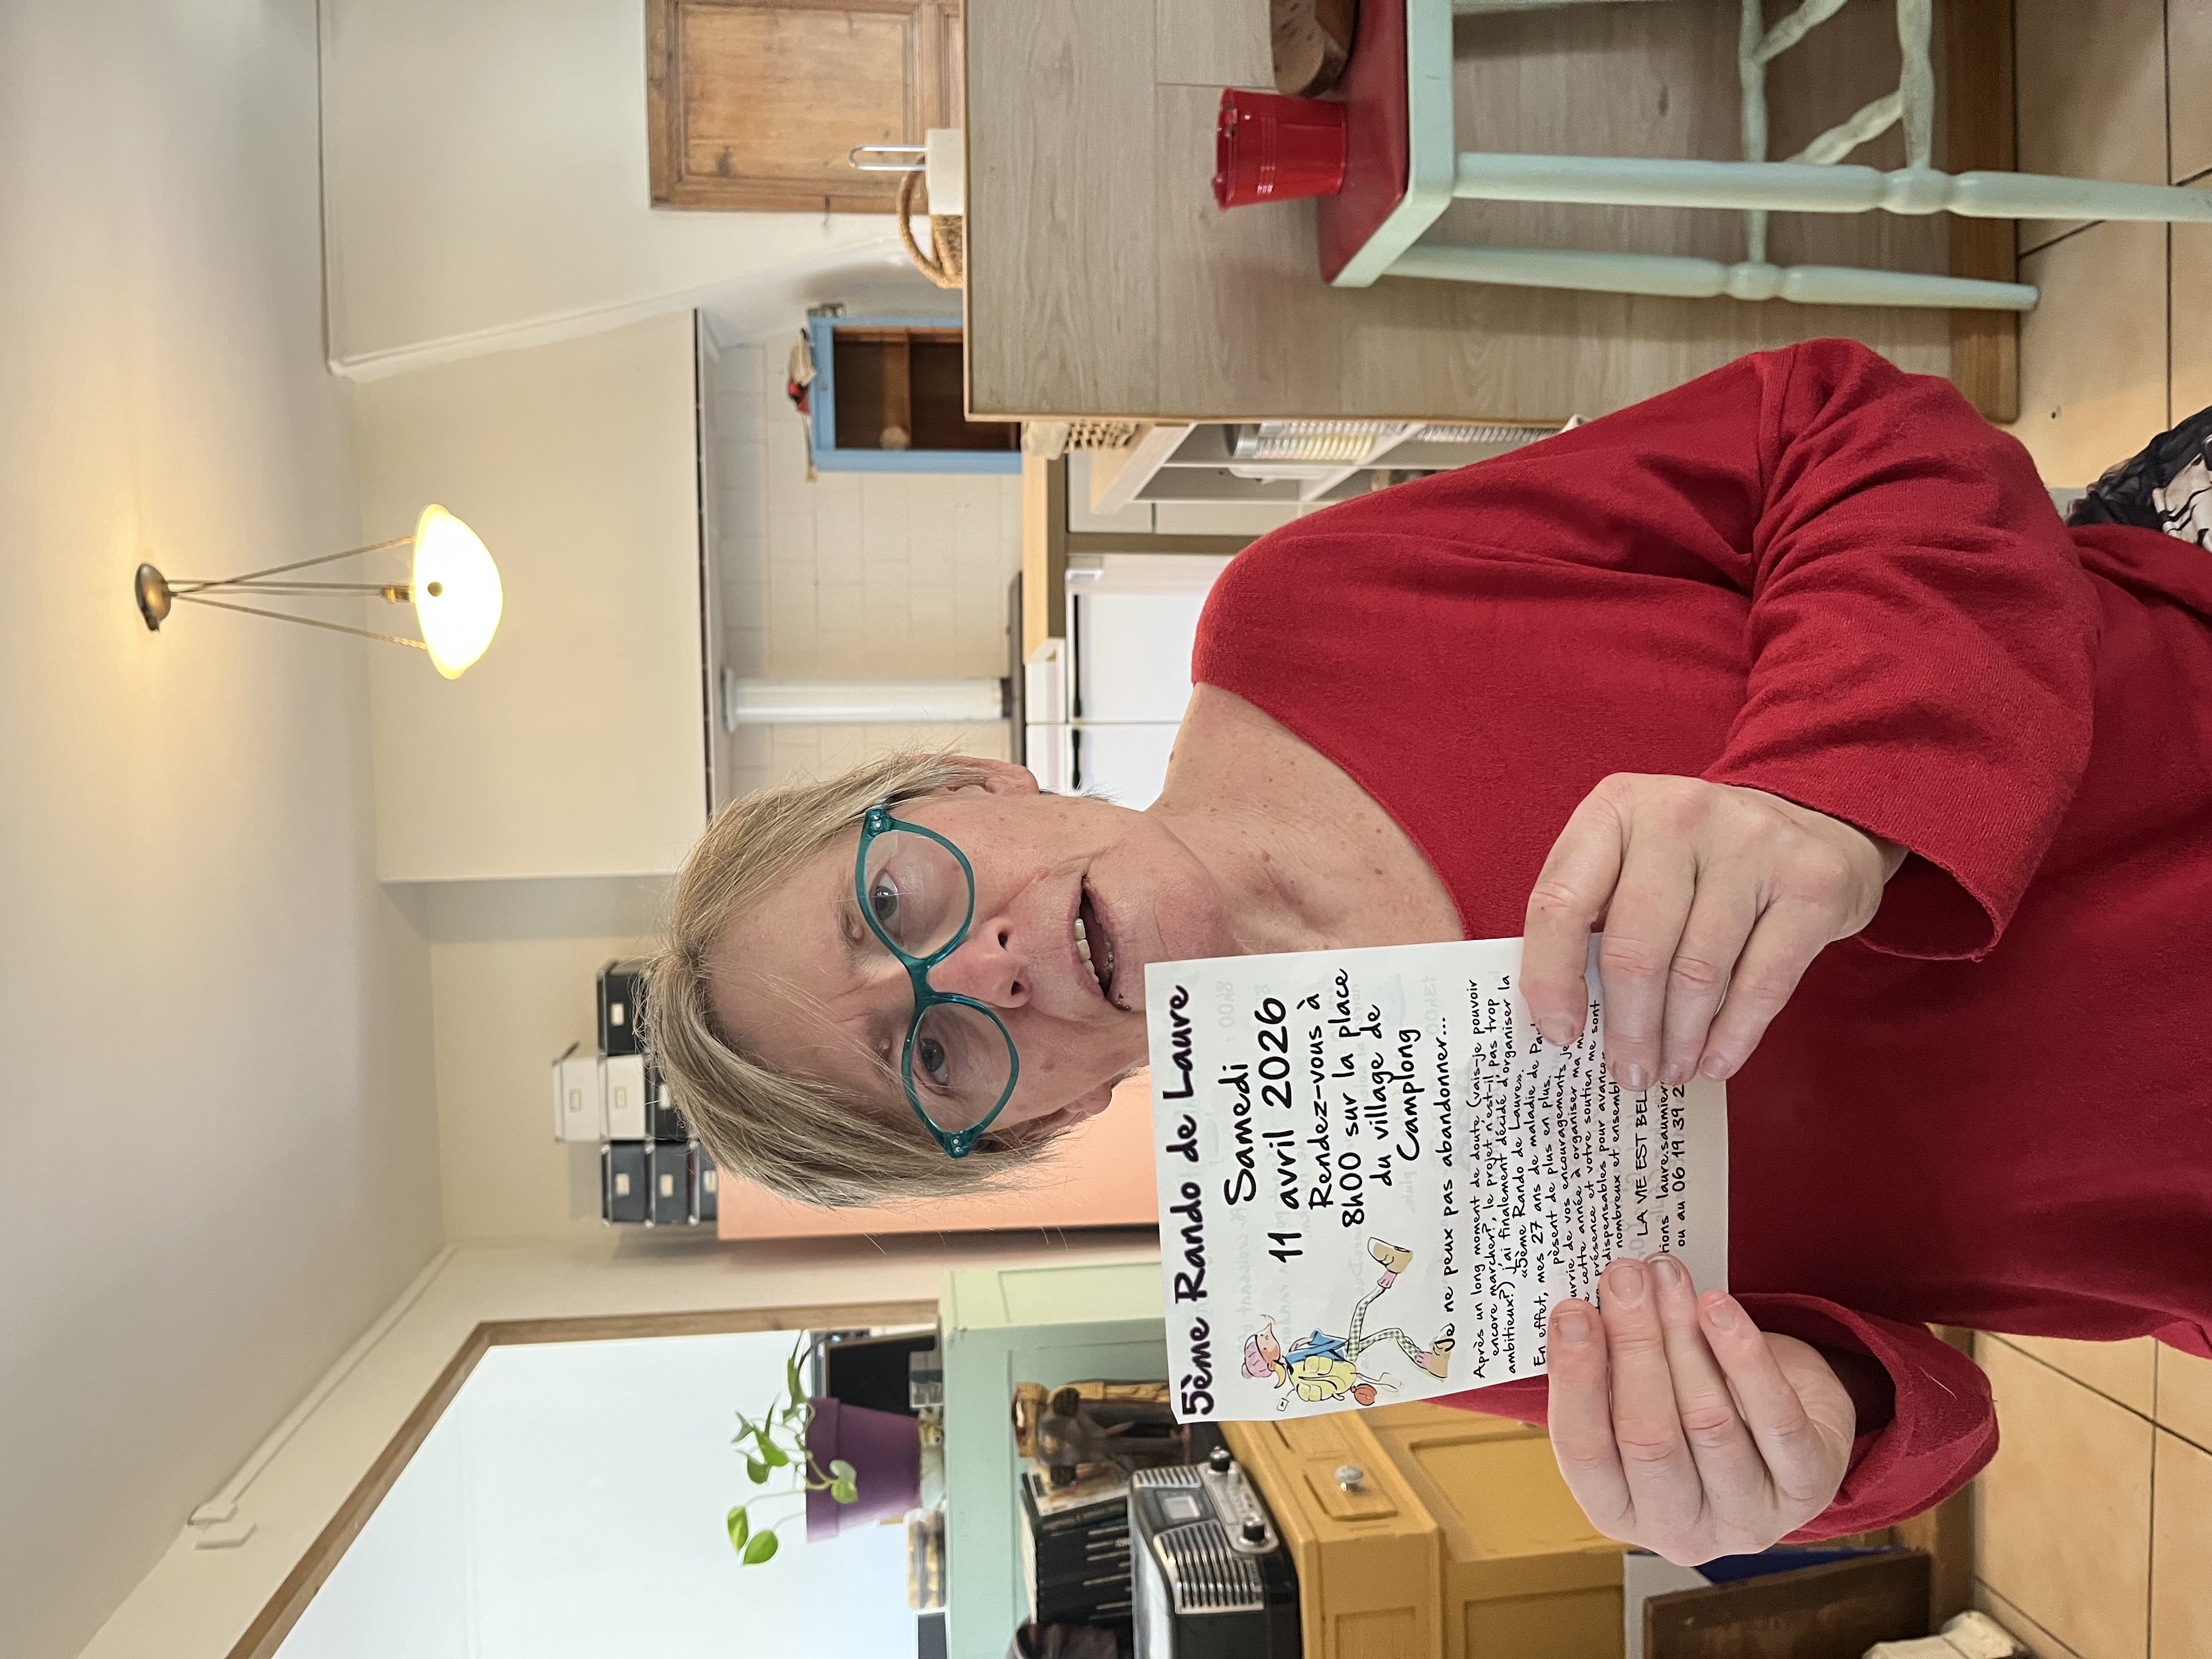 5ème Rando de Laure
Samedi
11 avril 2026
Rendez-vous à
8h00 sur la place
du village de
Camplong
Je ne peux pas abandonner...
Après un long moment de doute (vais-je pouvoir
encore marcher?, le projet n'est-il pas trop
ambitieux?) j'ai finalement décidé d'organiser la
«5ème Rando de Laure».
En effet, mes 27 ans de maladie de
pèsent de plus en plus.
de vos encouragements, je
cette année à organiser ma
présence et votre soutien me sont
pour
nombreux et
LA VIE EST
laure.saumier
ou au 06 19 39 2